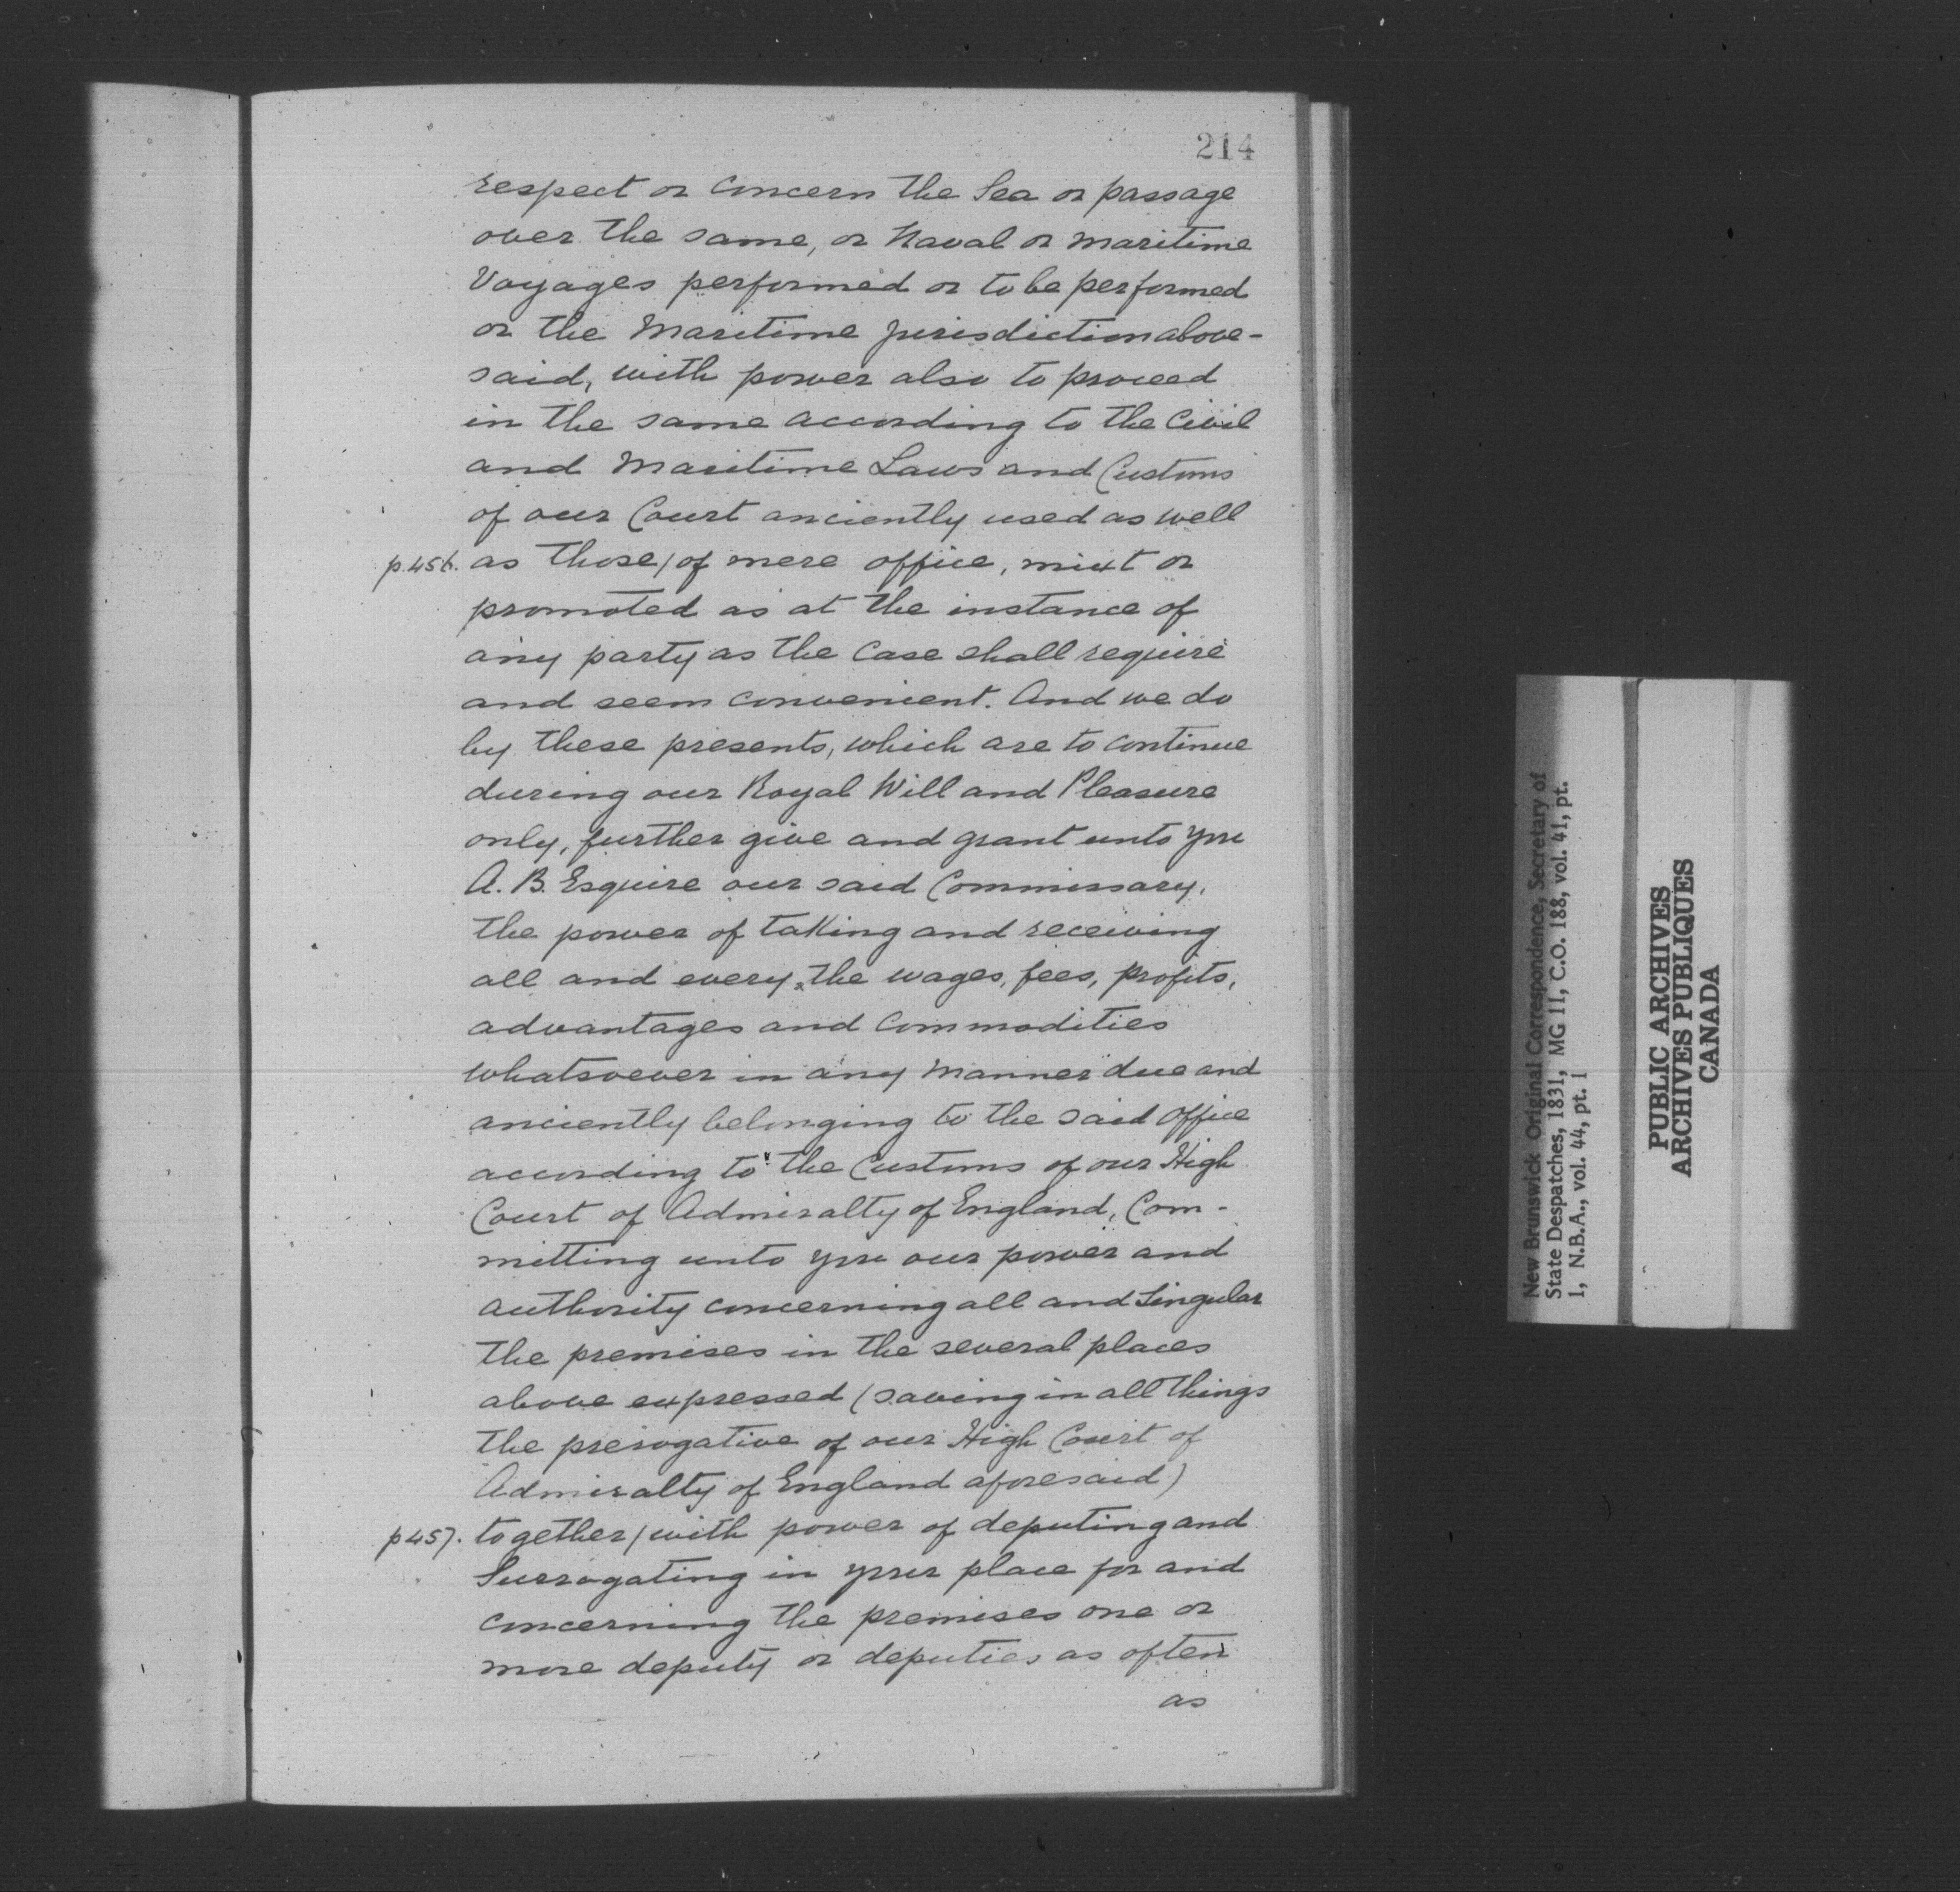 214
respect or concern the Sea or passage
over the same, or Naval or maritime
Voyages performed or to be performed
or the Maritime jurisdiction above-
said, with power also to proceed
in the same according to the Civil
and Maritime Laws and Customs
of our Court anciently used as well
p.456. as those/of mere office, mixt or
promoted as at the instance of
any party as the Case shall require
and seem convenient. And we do
by these presents, which are to continue
during our Royal Will and Pleasure
only, further give and grant unto you
A. B. Esquire our said Commissary,
the power of taking and receiving
all and every the wages, fees, profits,
advantages and Commodities
whatsoever in any Manner due and
anciently belonging to the said office
according to the Customs of our High
Court of Admiralty of England, Com-
mitting unto you our power and
authority concerning all and Singular
the premises in the several places
above expressed (saving in all things
the prerogative of our High Court of
Admiralty of England aforesaid)
p457. together/with power of deputing and
Surrogating in your place for and
concerning the premises one or
more deputy or deputies as often
as
New Brunswick Original Correspondence, Secretary of
State Despatches, 1831, MG 11, C.O. 188, vol. 41, pt.
1, N.B.A., vol. 44, pt. 1
PUBLIC ARCHIVES
ARCHIVES PUBLIQUES
CANADA